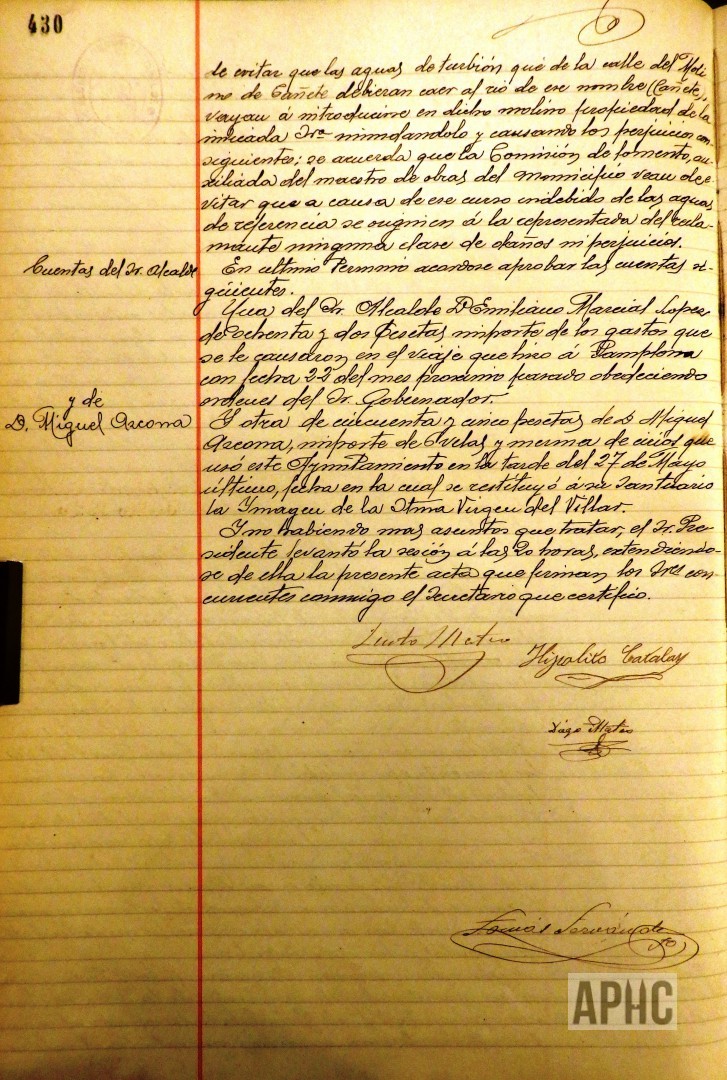 430
de evitar que las aguas de turbión que de la calle del Moli
no de Cañete debieran caer al rio de ese nombre (Cañete),
vayan á introducirse en dicho molino propiedad de la
indicada Sra inundandolo y causando los perjuicios con
siguientes; se acuerda que la Comisión de fomento, au
xiliada del maestro de obras del municipio vean de e
vitar que a causa de ese curso indebido de las aguas
de referencia se originen á la representada del recla
mante ninguna clase de daños ni perjuicios.
Cuentas del Sr. Alcalde
En ultimo termino acordose aprobar las cuentas si
guientes.
Una del Sr. Alcalde D. Emiliano Marcial Lopez
de ochenta y dos Pesetas importe de los gastos que
se le causaron en el viaje que hizo á Pamplona
con fecha 22 del mes proximo pasado obedeciendo
ordenes del Sr. Gobernador.
y de
D. Miguel Ascona
Y otra de cincuenta y cinco pesetas de D. Miguel
Ascona, importe de 6 velas y merma de cirios que
usó este Ayuntamiento en la tarde del 27 de Mayo
último, fecha en la cual se restituyó á su Santuario
la Ymagen de la Stma Virgen del Villar.
Y no habiendo mas asuntos que tratar, el Sr. Pre
sidente levantó la sesión á las 20 horas, extendiendo-
se de ella la presente acta que firman los Sres con-
currentes conmigo el Secretario que certifico.
Justo Mateo
Hipolito Catalan
Mateo
Tomás Fernández
APHC